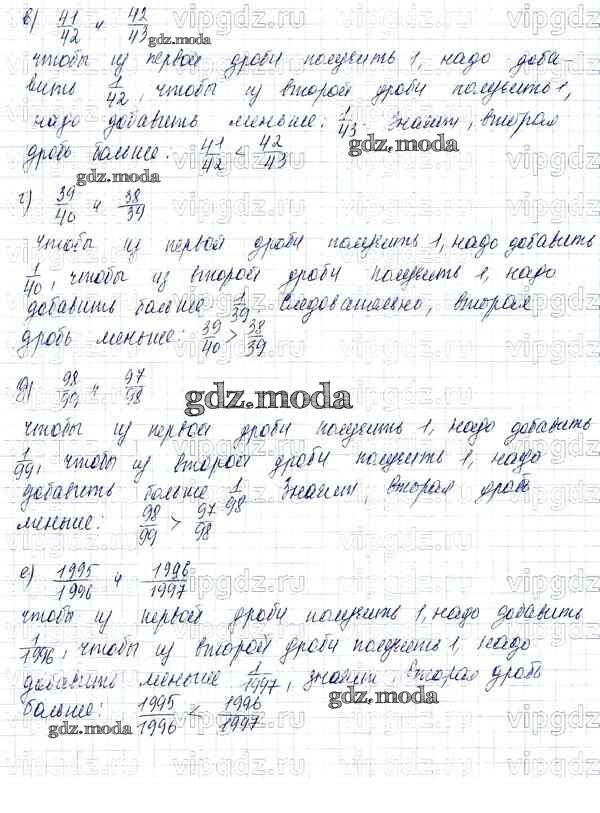 в) 41/42 и 42/43
чтобы из первой дроби получить 1, надо доба-
вить 1/42, чтобы из второй дроби получить 1,
надо добавить меньше: 1/43. Значит, вторая
дробь больше: 41/42 < 42/43
г) 39/40 и 38/39
чтобы из первой дроби получить 1, надо добавить
1/40, чтобы из второй дроби получить 1, надо
добавить больше 1/39. Следовательно, вторая
дробь меньше: 39/40 > 38/39
д) 98/99 и 97/98
gdz.moda
чтобы из первой дроби получить 1, надо добавить
1/99, чтобы из второй дроби получить 1, надо
добавить больше 1/98. Значит, вторая дробь
меньше: 98/99 > 97/98
е) 1995/1996 и 1996/1997
чтобы из первой дроби получить 1, надо добавить
1/1996, чтобы из второй дроби получить 1, надо
добавить меньше 1/1997, значит вторая дробь
больше: 1995/1996 < 1996/1997
gdz.moda
vipgdz.ru